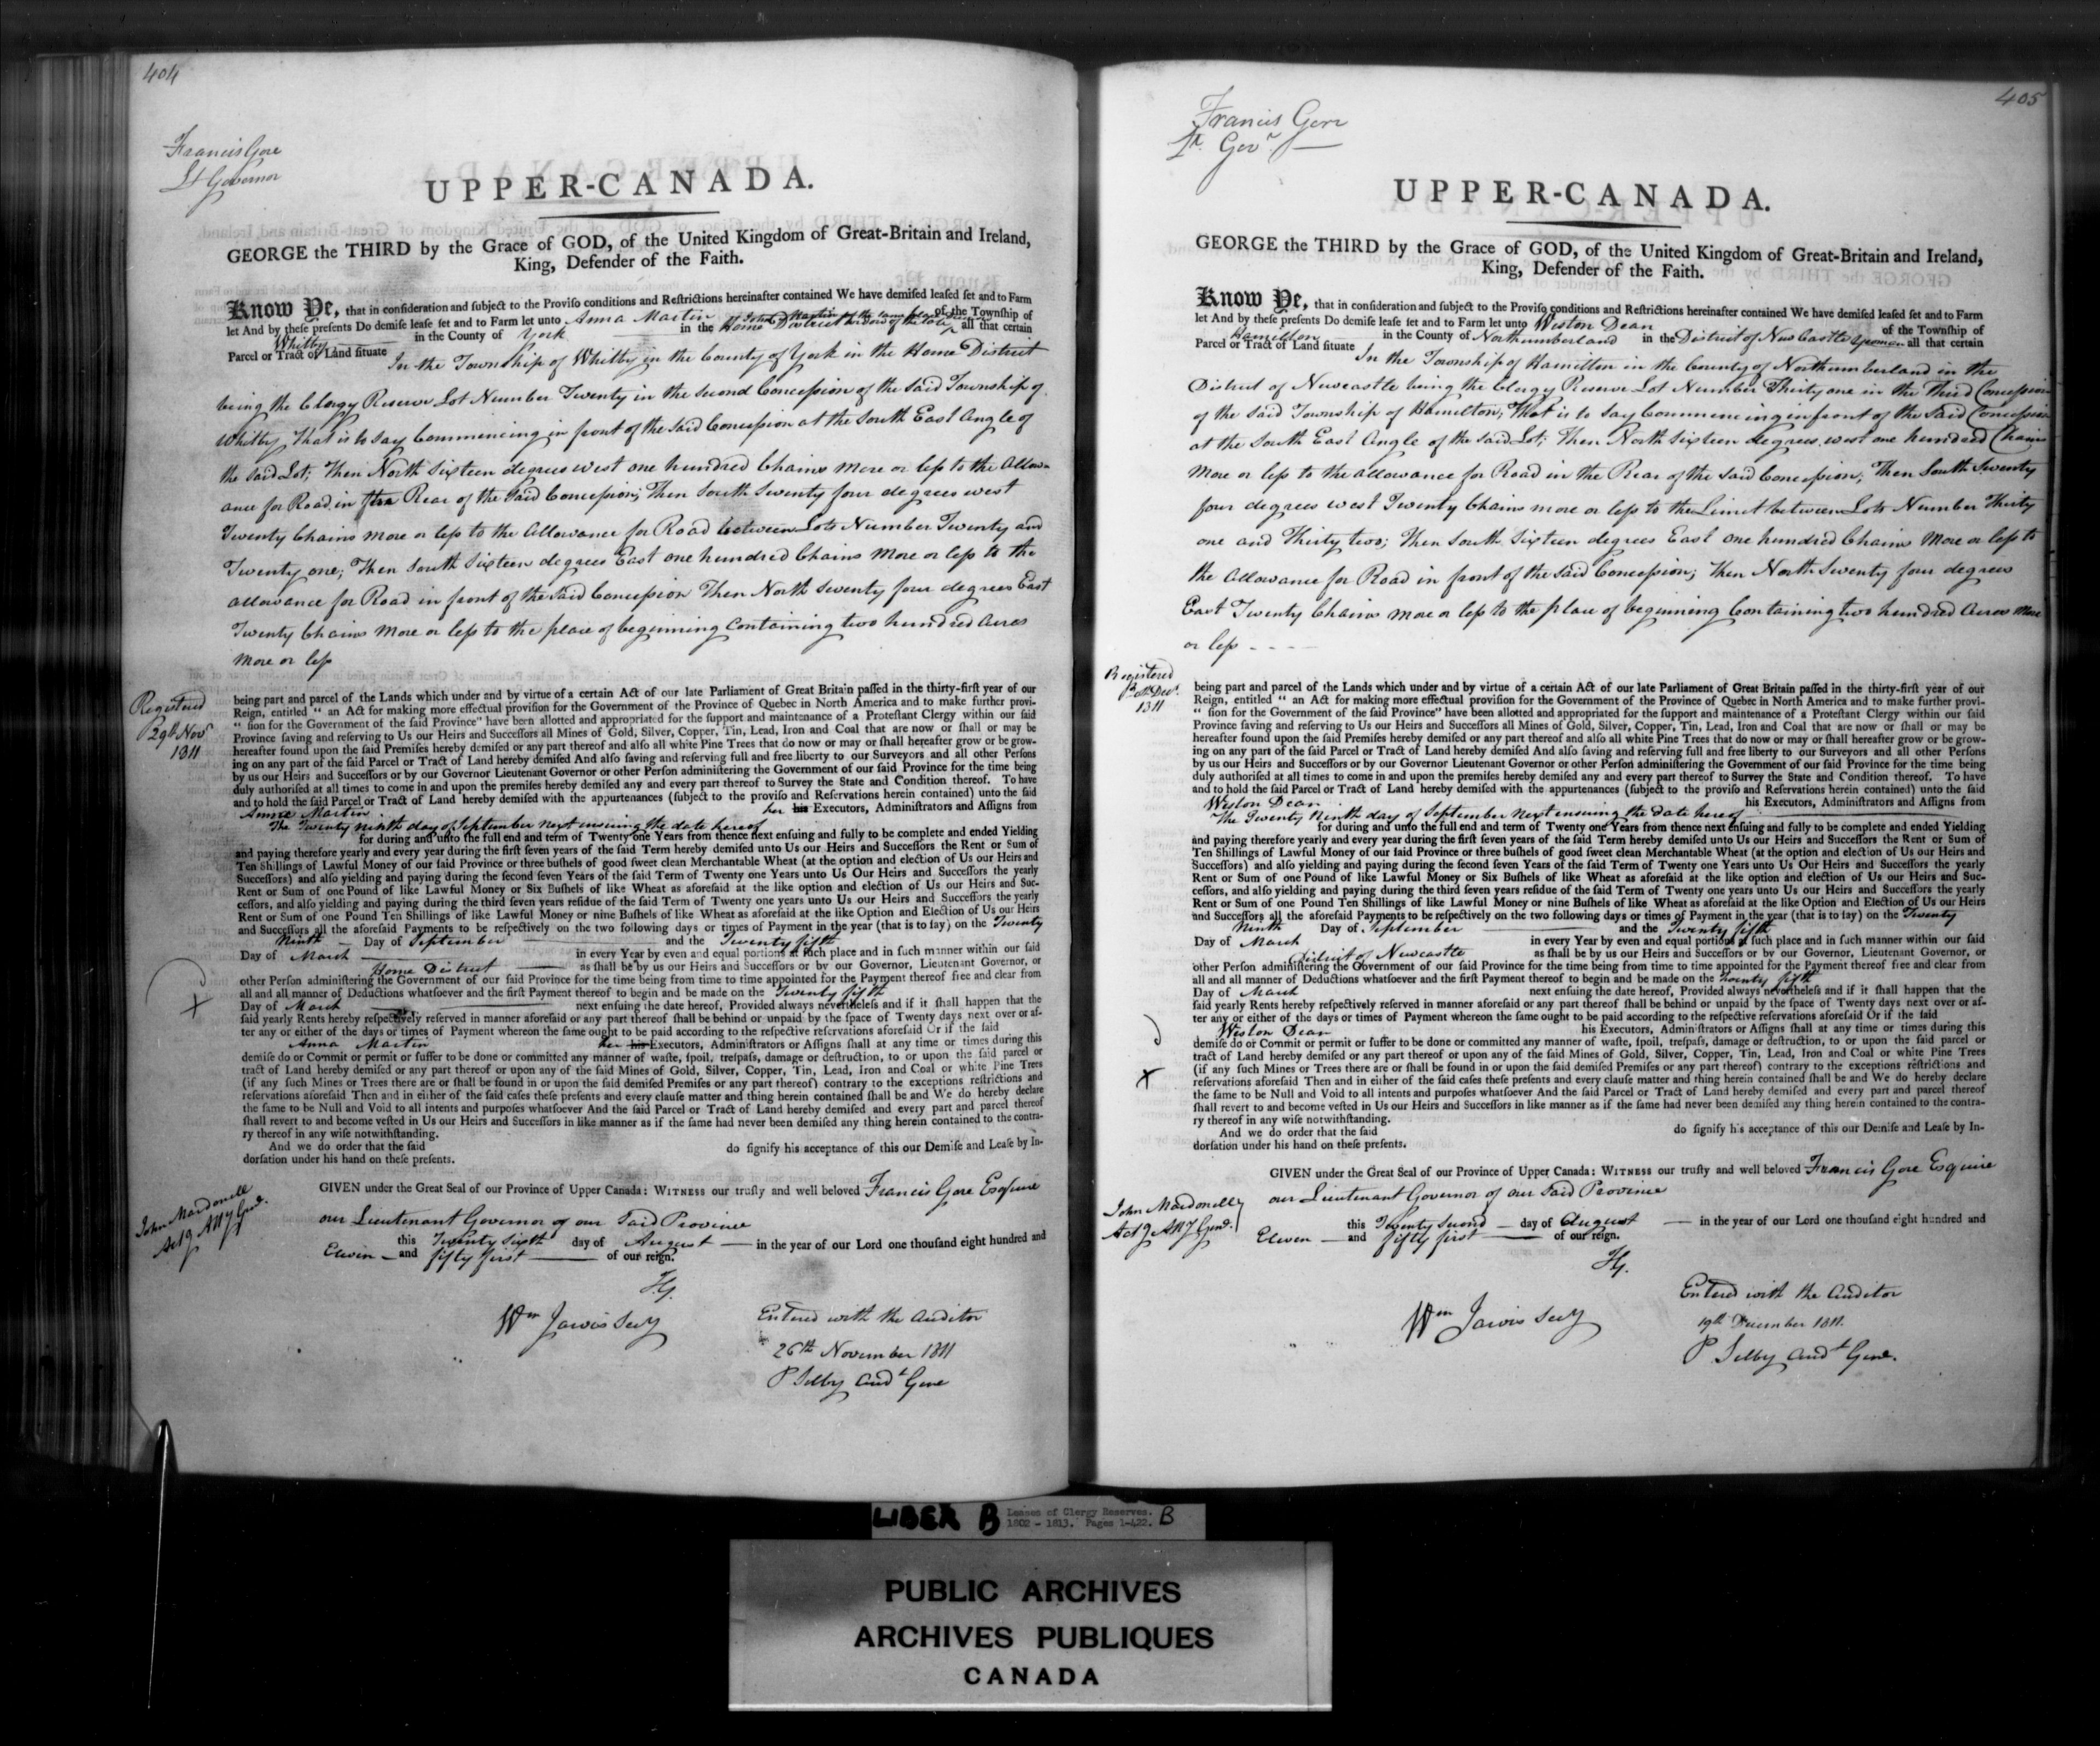 404
Francis Gore
Lt Governor
UPPER-CANADA.
GEORGE the THIRD by the Grace of GOD, of the United Kingdom of Great-Britain and Ireland,
King, Defender of the Faith.
Know Ye, that in consideration and subject to the Proviso conditions and Restrictions hereinafter contained We have demised leased set and to Farm
let And by these presents Do demise lease set and to Farm let unto Anna Martin of the Township of
Whitby in the County of York in the Home District all that certain
Parcel or Tract of Land situate In the Township of Whitby in the County of York in the Home District
being the Clergy Reserve Lot Number Twenty in the second Concession of the said Township of
Whitby, That is to say Commencing in front of the said Concession at the South East Angle of
the said Lot; Then North Sixteen degrees west one hundred Chains more or less to the Allow-
ance for Road in the Rear of the said Concession; Then South Seventy four degrees west
Twenty Chains more or less to the Allowance for Road between Lots Number Twenty and
Twenty one; Then South Sixteen degrees East one hundred Chains more or less to the
allowance for Road in front of the said Concession Then North seventy four degrees East
Twenty Chains more or less to the place of beginning Containing two hundred Acres
more or less
Registered
29th Nov
1811
being part and parcel of the Lands which under and by virtue of a certain Act of our late Parliament of Great Britain passed in the thirty-first year of our
Reign, entitled " an Act for making more effectual provision for the Government of the Province of Quebec in North America and to make further provi-
" sion for the Government of the said Province" have been allotted and appropriated for the support and maintenance of a Protestant Clergy within our said
Province saving and reserving to Us our Heirs and Successors all Mines of Gold, Silver, Copper, Tin, Lead, Iron and Coal that are now or shall or may be
hereafter found upon the said Premises hereby demised or any part thereof and also all white Pine Trees that do now or may or shall hereafter grow or be grow-
ing on any part of the said Parcel or Tract of Land hereby demised And also saving and reserving full and free liberty to our Surveyors and all other Persons
by us our Heirs and Successors or by our Governor Lieutenant Governor or other Person administering the Government of our said Province for the time being
duly authorised at all times to come in and upon the premises hereby demised any and every part thereof to Survey the State and Condition thereof. To have
and to hold the said Parcel or Tract of Land hereby demised with the appurtenances (subject to the proviso and Reservations herein contained) unto the said
Anna Martin her his Executors, Administrators and Assigns from
The Twenty ninth day of September next ensuing the date hereof
for during and unto the full end and term of Twenty one Years from thence next ensuing and fully to be complete and ended Yielding
and paying therefore yearly and every year during the first seven years of the said Term hereby demised unto Us our Heirs and Successors the Rent or Sum of
Ten Shillings of Lawful Money of our said Province or three bushels of good sweet clean Merchantable Wheat (at the option and election of Us our Heirs and
Successors) and also yielding and paying during the second seven Years of the said Term of Twenty one Years unto Us Our Heirs and Successors the yearly
Rent or Sum of one Pound of like Lawful Money or Six Bushels of like Wheat as aforesaid at the like option and election of Us our Heirs and Suc-
cessors, and also yielding and paying during the third seven years residue of the said Term of Twenty one years unto Us our Heirs and Successors the yearly
Rent or Sum of one Pound Ten Shillings of like Lawful Money or nine Bushels of like Wheat as aforesaid at the like Option and Election of Us our Heirs
and Successors all the aforesaid Payments to be respectively on the two following days or times of Payment in the year (that is to say) on the Twenty
Ninth Day of September and the Twenty fifth
Day of March in every Year by even and equal portions at such place and in such manner within our said
Home District as shall be by us our Heirs and Successors or by our Governor, Lieutenant Governor, or
other Person administering the Government of our said Province for the time being from time to time appointed for the Payment thereof free and clear from
all and all manner of Deductions whatsoever and the first Payment thereof to begin and be made on the Twenty fifth
Day of March next ensuing the date hereof, Provided always nevertheless and if it shall happen that the
said yearly Rents hereby respectively reserved in manner aforesaid or any part thereof shall be behind or unpaid by the space of Twenty days next over or af-
ter any or either of the days or times of Payment whereon the same ought to be paid according to the respective reservations aforesaid Or if the said
Anna Martin her his Executors, Administrators or Assigns shall at any time or times during this
demise do or Commit or permit or suffer to be done or committed any manner of waste, spoil, trespass, damage or destruction, to or upon the said parcel or
tract of Land hereby demised or any part thereof or upon any of the said Mines of Gold, Silver, Copper, Tin, Lead, Iron and Coal or white Pine Trees
(if any such Mines or Trees there are or shall be found in or upon the said demised Premises or any part thereof) contrary to the exceptions restrictions and
reservations aforesaid Then and in either of the said cases these presents and every clause matter and thing herein contained shall be and We do hereby declare
the same to be Null and Void to all intents and purposes whatsoever And the said Parcel or Tract of Land hereby demised and every part and parcel thereof
shall revert to and become vested in Us our Heirs and Successors in like manner as if the same had never been demised any thing herein contained to the contra-
ry thereof in any wise notwithstanding.
And we do order that the said do signify his acceptance of this our Demise and Lease by In-
dorsation under his hand on these presents.
GIVEN under the Great Seal of our Province of Upper Canada: WITNESS our trusty and well beloved Francis Gore Esquire
our Lieutenant Governor of our Said Province
this Twenty sixth day of August in the year of our Lord one thousand eight hundred and
Eleven and fifty first of our reign.
John Macdonell
Actg Atty Genl.
F.G.
Wm Jarvis Secy
Entered with the Auditor
26th November 1811
P Selby Audt Genl
405
Francis Gore
Lt. Govr.
UPPER-CANADA.
GEORGE the THIRD by the Grace of GOD, of the United Kingdom of Great-Britain and Ireland,
King, Defender of the Faith.
Know Ye, that in consideration and subject to the Proviso conditions and Restrictions hereinafter contained We have demised leased set and to Farm
let And by these presents Do demise lease set and to Farm let unto Weston Dean of the Township of
Hamilton in the County of Northumberland in the District of New Castle Yeoman all that certain
Parcel or Tract of Land situate In the Township of Hamilton in the County of Northumberland in the
District of Newcastle being the Clergy Reserve Lot Number Thirty one in the Third Concession
of the said Township of Hamilton, That is to say Commencing in front of the said Concession
at the South East Angle of the said Lot; Then North Sixteen degrees west one hundred Chains
more or less to the allowance for Road in the Rear of the said Concession; Then South Seventy
four degrees west Twenty Chains more or less to the Limit between Lots Number Thirty
one and Thirty two; Then South Sixteen degrees East one hundred Chains more or less to
the Allowance for Road in front of the said Concession; Then North Seventy four degrees
East Twenty Chains more or less to the place of beginning Containing two hundred Acres more
or less
Registered
Decr.
1811
being part and parcel of the Lands which under and by virtue of a certain Act of our late Parliament of Great Britain passed in the thirty-first year of our
Reign, entitled " an Act for making more effectual provision for the Government of the Province of Quebec in North America and to make further provi-
" sion for the Government of the said Province" have been allotted and appropriated for the support and maintenance of a Protestant Clergy within our said
Province saving and reserving to Us our Heirs and Successors all Mines of Gold, Silver, Copper, Tin, Lead, Iron and Coal that are now or shall or may be
hereafter found upon the said Premises hereby demised or any part thereof and also all white Pine Trees that do now or may or shall hereafter grow or be grow-
ing on any part of the said Parcel or Tract of Land hereby demised And also saving and reserving full and free liberty to our Surveyors and all other Persons
by us our Heirs and Successors or by our Governor Lieutenant Governor or other Person administering the Government of our said Province for the time being
duly authorised at all times to come in and upon the premises hereby demised any and every part thereof to Survey the State and Condition thereof. To have
and to hold the said Parcel or Tract of Land hereby demised with the appurtenances (subject to the proviso and Reservations herein contained) unto the said
Weston Dean his Executors, Administrators and Assigns from
The Twenty Ninth day of September Next ensuing the date hereof
for during and unto the full end and term of Twenty one Years from thence next ensuing and fully to be complete and ended Yielding
and paying therefore yearly and every year during the first seven years of the said Term hereby demised unto Us our Heirs and Successors the Rent or Sum of
Ten Shillings of Lawful Money of our said Province or three bushels of good sweet clean Merchantable Wheat (at the option and election of Us our Heirs and
Successors) and also yielding and paying during the second seven Years of the said Term of Twenty one Years unto Us Our Heirs and Successors the yearly
Rent or Sum of one Pound of like Lawful Money or Six Bushels of like Wheat as aforesaid at the like option and election of Us our Heirs and Suc-
cessors, and also yielding and paying during the third seven years residue of the said Term of Twenty one years unto Us our Heirs and Successors the yearly
Rent or Sum of one Pound Ten Shillings of like Lawful Money or nine Bushels of like Wheat as aforesaid at the like Option and Election of Us our Heirs
and Successors all the aforesaid Payments to be respectively on the two following days or times of Payment in the year (that is to say) on the Twenty
Ninth Day of September and the Twenty fifth
Day of March in every Year by even and equal portions at such place and in such manner within our said
District of Newcastle as shall be by us our Heirs and Successors or by our Governor, Lieutenant Governor, or
other Person administering the Government of our said Province for the time being from time to time appointed for the Payment thereof free and clear from
all and all manner of Deductions whatsoever and the first Payment thereof to begin and be made on the twenty fifth
Day of March next ensuing the date hereof, Provided always nevertheless and if it shall happen that the
said yearly Rents hereby respectively reserved in manner aforesaid or any part thereof shall be behind or unpaid by the space of Twenty days next over or af-
ter any or either of the days or times of Payment whereon the same ought to be paid according to the respective reservations aforesaid Or if the said
Weston Dean his Executors, Administrators or Assigns shall at any time or times during this
demise do or Commit or permit or suffer to be done or committed any manner of waste, spoil, trespass, damage or destruction, to or upon the said parcel or
tract of Land hereby demised or any part thereof or upon any of the said Mines of Gold, Silver, Copper, Tin, Lead, Iron and Coal or white Pine Trees
(if any such Mines or Trees there are or shall be found in or upon the said demised Premises or any part thereof) contrary to the exceptions restrictions and
reservations aforesaid Then and in either of the said cases these presents and every clause matter and thing herein contained shall be and We do hereby declare
the same to be Null and Void to all intents and purposes whatsoever And the said Parcel or Tract of Land hereby demised and every part and parcel thereof
shall revert to and become vested in Us our Heirs and Successors in like manner as if the same had never been demised any thing herein contained to the contra-
ry thereof in any wise notwithstanding.
And we do order that the said do signify his acceptance of this our Demise and Lease by In-
dorsation under his hand on these presents.
GIVEN under the Great Seal of our Province of Upper Canada: WITNESS our trusty and well beloved Francis Gore Esquire
our Lieutenant Governor of our Said Province
this Twenty Second day of August in the year of our Lord one thousand eight hundred and
Eleven and fifty first of our reign.
John Macdonell
Actg Atty Genl.
F.G.
Wm Jarvis Secy
Entered with the Auditor
19th December 1811.
P. Selby Audt Genl.
LIBER B Leases of Clergy Reserves. B
1802 - 1813. Pages 1-422.
PUBLIC ARCHIVES
ARCHIVES PUBLIQUES
CANADA